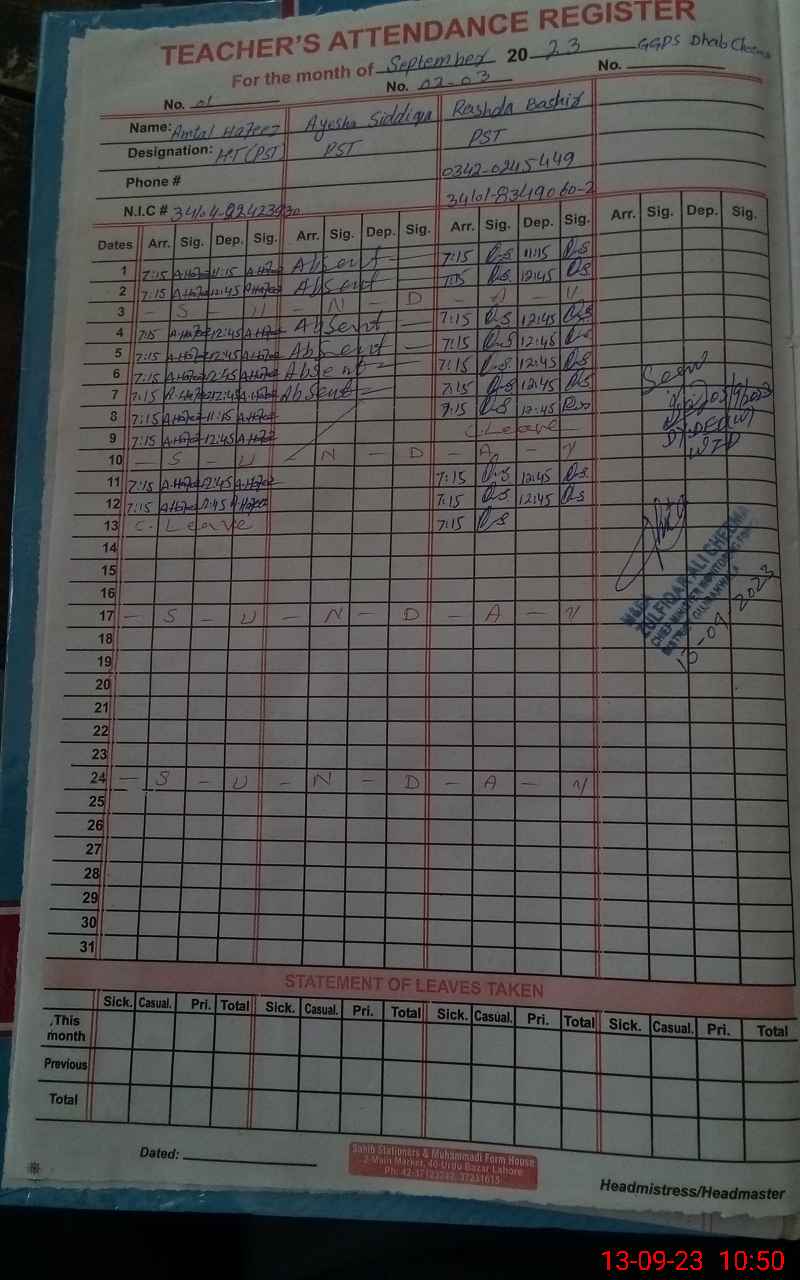 TEACHER'S ATTENDANCE REGISTER
For the month of September 20 23 GGPS Dhab Cheema
No. 01 No. 02-03 No.
Name: Amtal Hafeez Ayesha Siddiqa Rashda Bashir
Designation: HT (PST) PST PST
Phone # 0342-0245449
N.I.C # 34101-8349060-2
Dates Arr. Sig. Dep. Sig. Arr. Sig. Dep. Sig. Arr. Sig. Dep. Sig. Arr. Sig. Dep. Sig.
1 7:15 A.Hafeez 11:15 A.Hafeez Absent 7:15 R.S 11:15 R.S
2 7:15 A.Hafeez 12:45 A.Hafeez Absent 7:15 R.S 12:45 R.S
3 - S - U - N - D - A - Y
4 7:15 A.Hafeez 12:45 A.Hafeez Absent 7:15 R.S 12:45 R.S
5 7:15 A.Hafeez 12:45 A.Hafeez Absent 7:15 R.S 12:45 R.S
6 7:15 A.Hafeez 12:45 A.Hafeez Absent 7:15 R.S 12:45 R.S
7 7:15 A.Hafeez 12:45 A.Hafeez Absent 7:15 R.S 12:45 R.S
8 7:15 A.Hafeez 11:15 A.Hafeez 7:15 R.S 12:45 R.S
9 7:15 A.Hafeez 12:45 A.Hafeez C.Leave
10 - S - U - N - D - A - Y
11 7:15 A.Hafeez 12:45 A.Hafeez 7:15 R.S 12:45 R.S
12 7:15 A.Hafeez 12:45 A.Hafeez 7:15 R.S 12:45 R.S
13 C. Leave 7:15 R.S
14
15
16
17 - S - U - N - D - A - Y
18
19
20
21
22
23
24 - S - U - N - D - A - Y
25
26
27
28
29
30
31
Seen
ZULFIQAR ALI CHEEMA
13-09-2023
STATEMENT OF LEAVES TAKEN
Sick. Casual. Pri. Total Sick. Casual. Pri. Total Sick. Casual. Pri. Total Sick. Casual. Pri. Total
This month
Previous
Total
Dated:
Sahib Stationers & Muhammadi Form House
2-Main Market, 40-Urdu Bazar Lahore
Headmistress/Headmaster
13-09-23 10:50